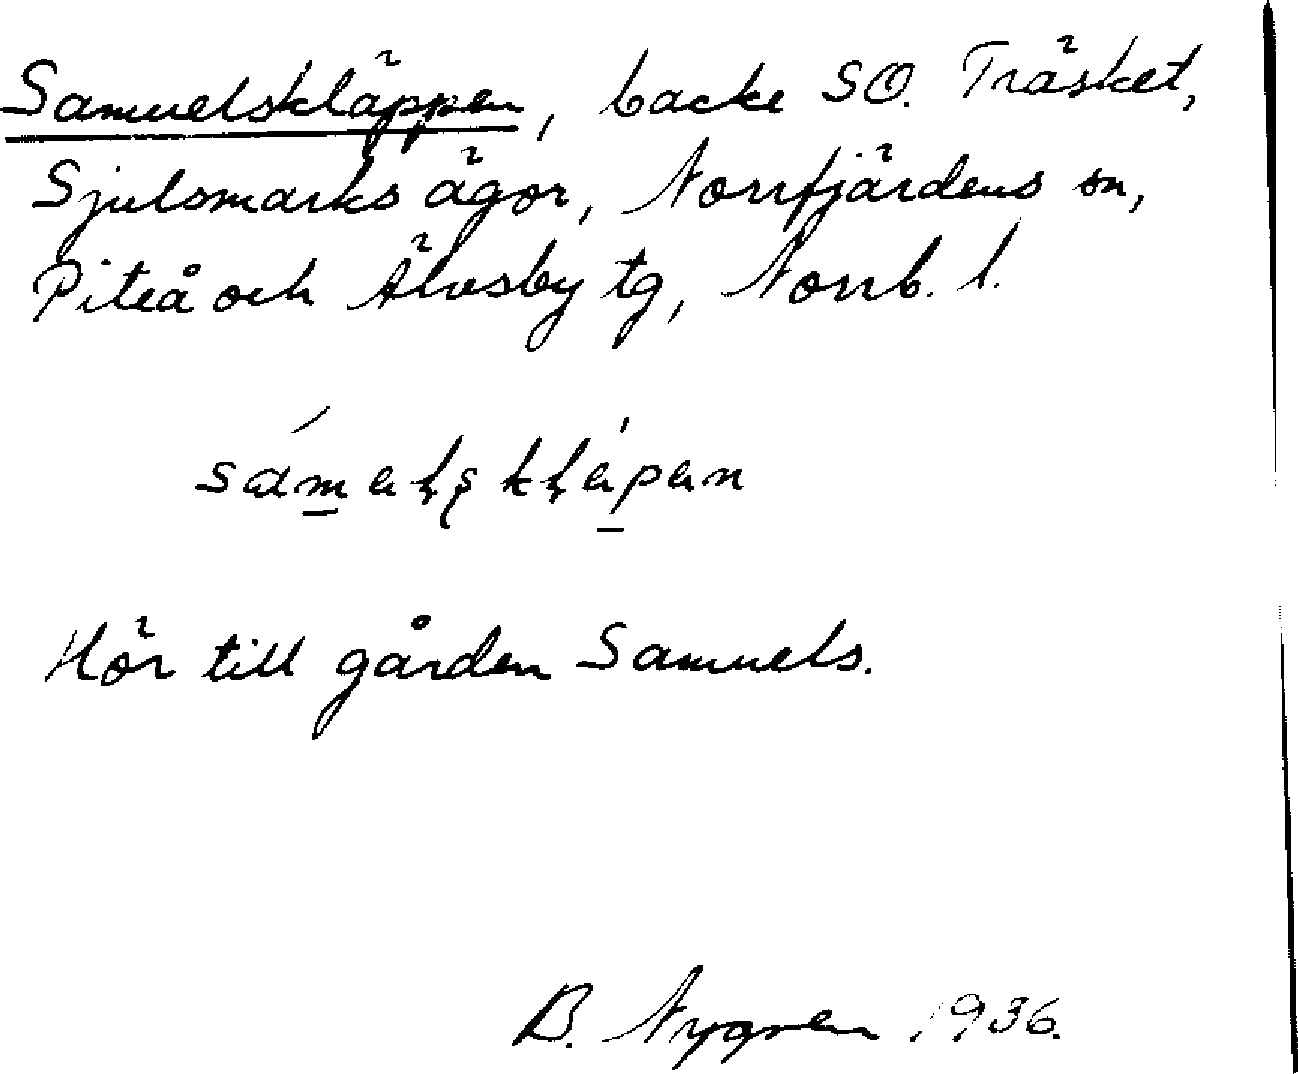 Samuelskläppen, backe SO. Träsket,
Sjulsmarks ägor, Norrfjärdens sn,
Piteå och Älvsby tg, Norrb. l.
Hör till gården Samuels.
B. Nygren 1936.